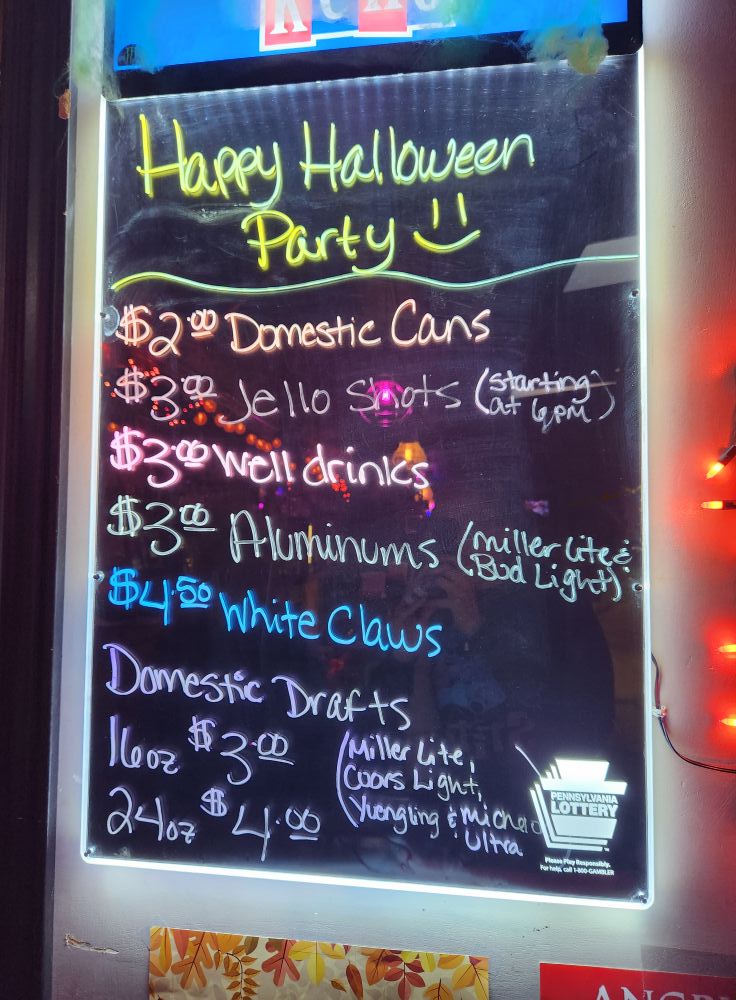 Happy Halloween
Party
$2.00 Domestic Cans
$3.00 Jello Shots (starting at 6pm)
$3.00 Well drinks
$3.00 Aluminums (Miller Lite & Bud Light)
$4.50 White Claws
Domestic Drafts
16oz $3.00
24oz $4.00
(Miller Lite,
Coors Light,
Yuengling & Michelo
Ultra
PENNSYLVANIA
LOTTERY
Please Play Responsibly.
For help, call 1-800-GAMBLER